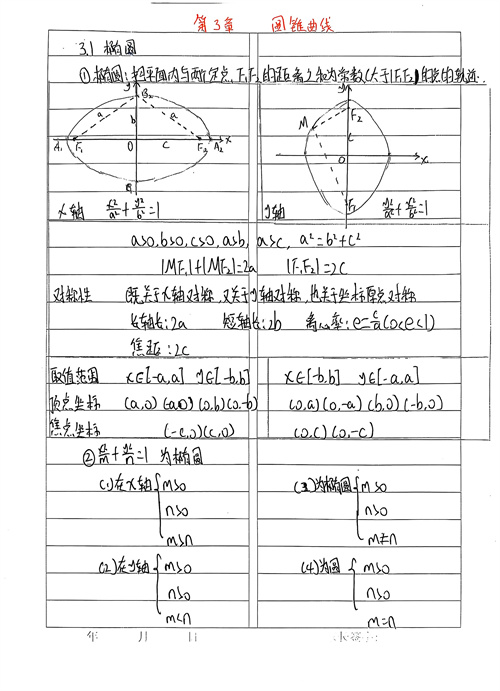 第3章 圆锥曲线
3.1 椭圆
①椭圆:把平面内与两个定点F₁F₂的距离之和为常数(大于|F₁F₂|)的点的轨迹.
y
B₂
a
b
a
A₁ F₁ O C F₂ A₂ x
y
F₂
M
c
O x
F₁
x轴 x²/a²+y²/b²=1
y轴 y²/a²+x²/b²=1
a>0,b>0,c>0,a>b,a>c, a²=b²+c²
|MF₁|+|MF₂|=2a |F₁F₂|=2c
对称性 既关于x轴对称,又关于y轴对称,也关于坐标原点对称
长轴长:2a 短轴长:2b 离心率:e=c/a(0<e<1)
焦距:2c
取值范围 x∈[-a,a] y∈[-b,b] x∈[-b,b] y∈[-a,a]
顶点坐标 (a,0)(-a,0)(0,b)(0,-b) (0,a)(0,-a)(b,0)(-b,0)
焦点坐标 (-c,0)(c,0) (0,c)(0,-c)
②x²/m+y²/n=1 为椭圆
(1)在x轴{m>0 (3)为椭圆{m>0
n>0 n>0
m>n m≠n
(2)在y轴{m>0 (4)为圆{m>0
n>0 n>0
m<n m=n
年 月 日